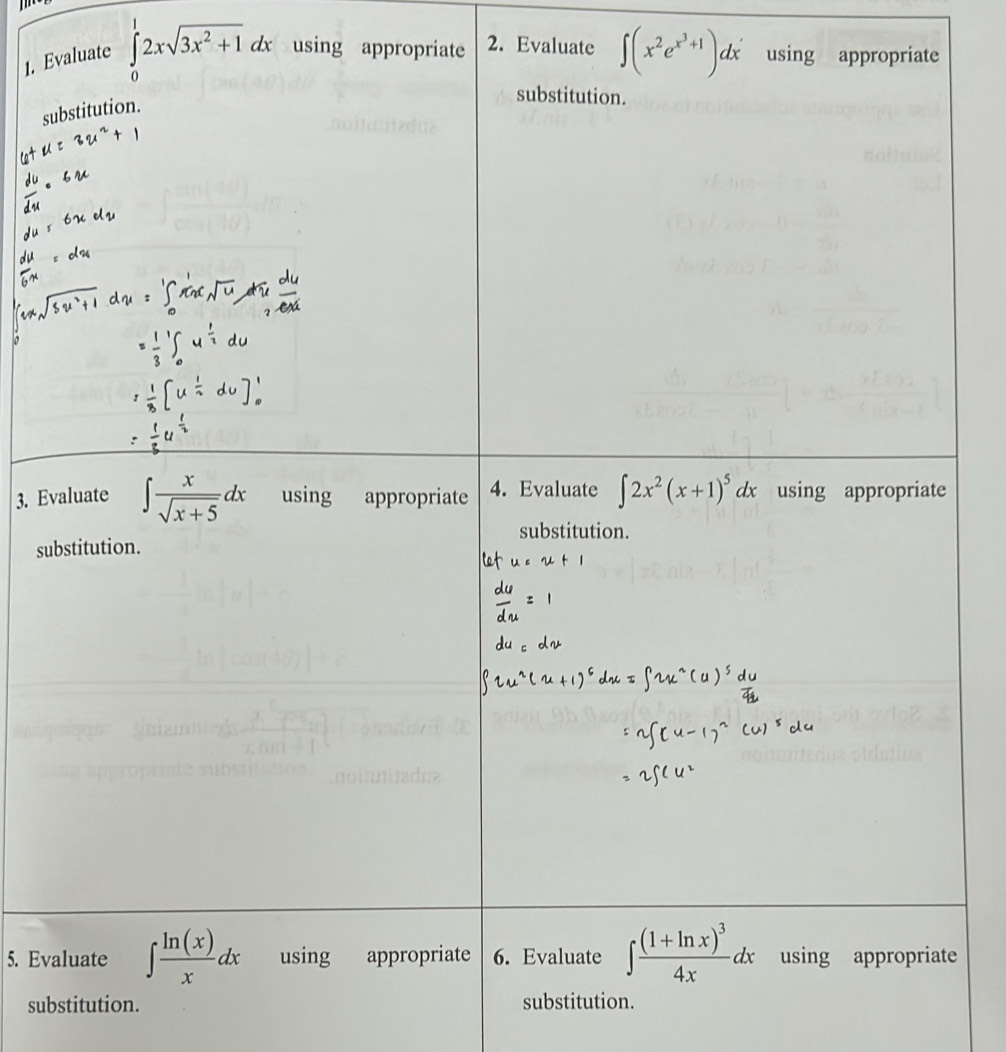 1. Evaluate ∫₀¹ 2x√(3x² + 1) dx using appropriate
substitution.
let u = 3x² + 1
du/dx = 6x
du = 6x dx
du/6x = dx
∫₀¹ 2x√(3x²+1) dx = ∫₀¹ 2x √u dx du/6x
= 1/3 ∫₀¹ u^(1/2) du
= 1/3 [u^(1/2) du]₀¹
= 1/3 u^(1/2)
2. Evaluate ∫(x²e^(x³+1)) dx using appropriate
substitution.
3. Evaluate ∫ x/√(x+5) dx using appropriate
substitution.
4. Evaluate ∫2x²(x+1)⁵ dx using appropriate
substitution.
let u = x + 1
du/dx = 1
du = dx
∫2x²(x+1)⁵ dx = ∫2x²(u)⁵ du
= 2∫(u-1)² (u)⁵ du
= 2∫(u²
5. Evaluate ∫ ln(x)/x dx using appropriate
substitution.
6. Evaluate ∫ (1+ln x)³/4x dx using appropriate
substitution.